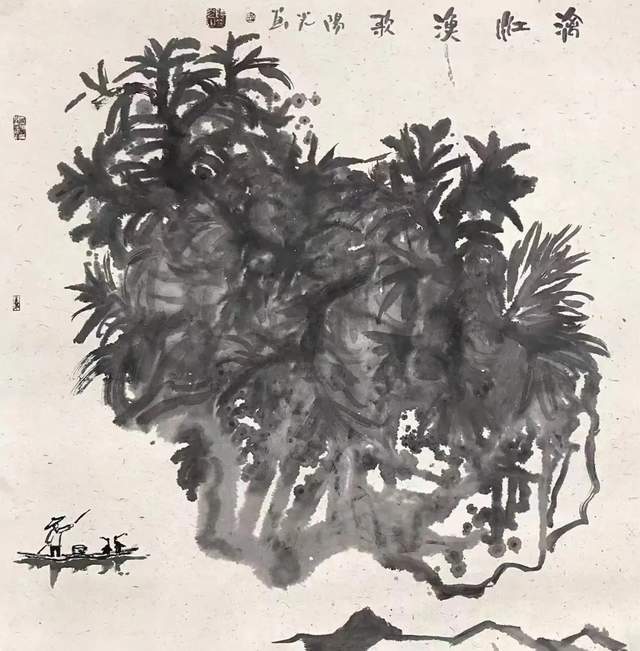 漓江漁歌 陽光